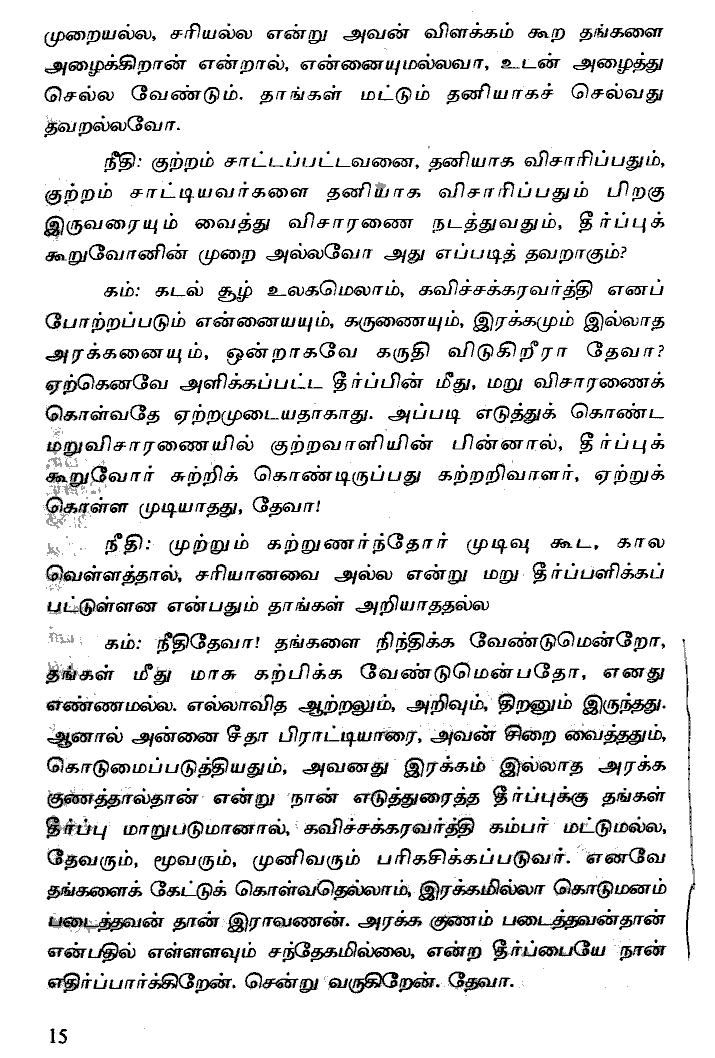 முறையல்ல, சரியல்ல என்று அவன் விளக்கம் கூற தங்களை
அழைக்கிறான் என்றால், என்னையுமல்லவா, உடன் அழைத்து
செல்ல வேண்டும். தாங்கள் மட்டும் தனியாகச் செல்வது
தவறல்லவோ.
நீதி: குற்றம் சாட்டப்பட்டவனை, தனியாக விசாரிப்பதும்,
குற்றம் சாட்டியவர்களை தனியாக விசாரிப்பதும் பிறகு
இருவரையும் வைத்து விசாரணை நடத்துவதும், தீர்ப்புக்
கூறுவோனின் முறை அல்லவோ அது எப்படித் தவறாகும்?
கம்: கடல் சூழ் உலகமெலாம், கவிச்சக்கரவர்த்தி எனப்
போற்றப்படும் என்னையயும், கருணையும், இரக்கமும் இல்லாத
அரக்கனையும், ஒன்றாகவே கருதி விடுகிறீரா தேவா?
ஏற்கெனவே அளிக்கப்பட்ட தீர்ப்பின் மீது, மறு விசாரணைக்
கொள்வதே ஏற்றமுடையதாகாது. அப்படி எடுத்துக் கொண்ட
மறுவிசாரணையில் குற்றவாளியின் பின்னால், தீர்ப்புக்
கூறுவோர் சுற்றிக் கொண்டிருப்பது கற்றறிவாளர், ஏற்றுக்
கொள்ள முடியாதது, தேவா!
நீதி: முற்றும் கற்றுணர்ந்தோர் முடிவு கூட, கால
வெள்ளத்தால், சரியானவை அல்ல என்று மறு தீர்ப்பளிக்கப்
பட்டுள்ளன என்பதும் தாங்கள் அறியாததல்ல
கம்: நீதிதேவா! தங்களை நிந்திக்க வேண்டுமென்றோ,
தங்கள் மீது மாசு கற்பிக்க வேண்டுமென்பதோ, எனது
எண்ணமல்ல. எல்லாவித ஆற்றலும், அறிவும், திறனும் இருந்தது.
ஆனால் அன்னை சீதா பிராட்டியாரை, அவன் சிறை வைத்ததும்,
கொடுமைப்படுத்தியதும், அவனது இரக்கம் இல்லாத அரக்க
குணத்தால்தான் என்று நான் எடுத்துரைத்த தீர்ப்புக்கு தங்கள்
தீர்ப்பு மாறுபடுமானால், கவிச்சக்கரவர்த்தி கம்பர் மட்டுமல்ல,
தேவரும், மூவரும், முனிவரும் பரிகசிக்கப்படுவர். எனவே
தங்களைக் கேட்டுக் கொள்வதெல்லாம், இரக்கமில்லா கொடுமனம்
படைத்தவன் தான் இராவணன். அரக்க குணம் படைத்தவன்தான்
என்பதில் எள்ளளவும் சந்தேகமில்லை, என்ற தீர்ப்பையே நான்
எதிர்ப்பார்க்கிறேன். சென்று வருகிறேன். தேவா.
15